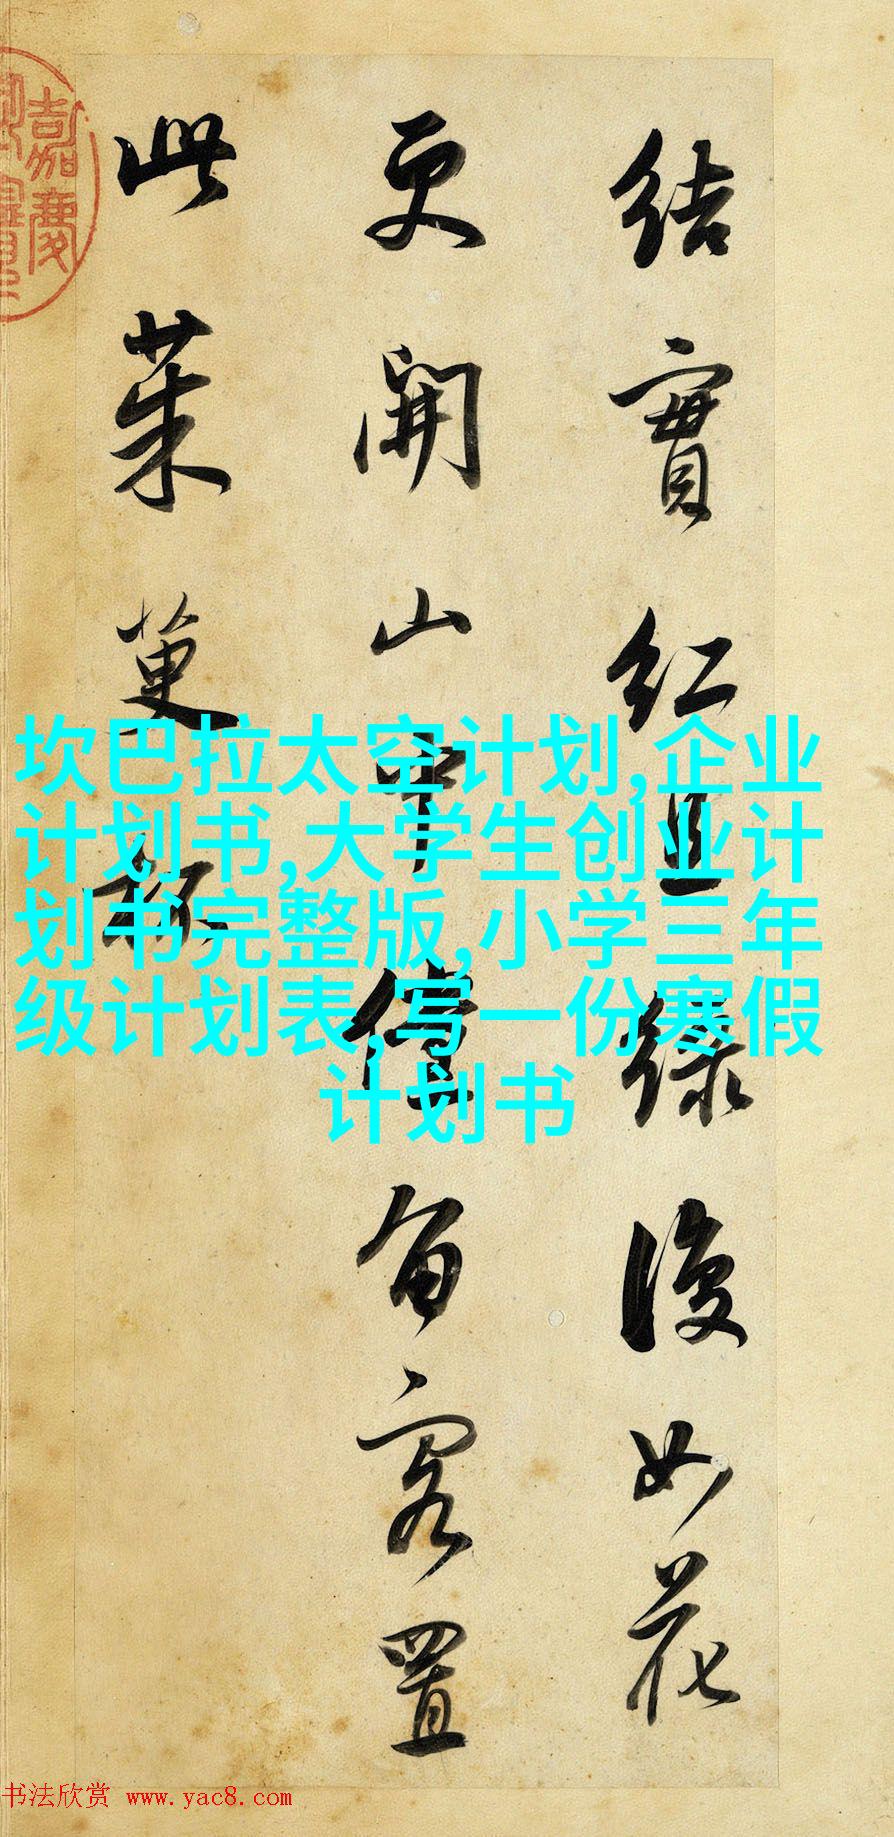 結實紅且綠復如花
更開山中儻留客置
此茱萸杯
嘉慶
坎巴拉太空计划,企业
计划书,大学生创业计
划书完整版,小学三年
级计划表,写一份寒假
计划书
书法欣赏 www.yac8.com